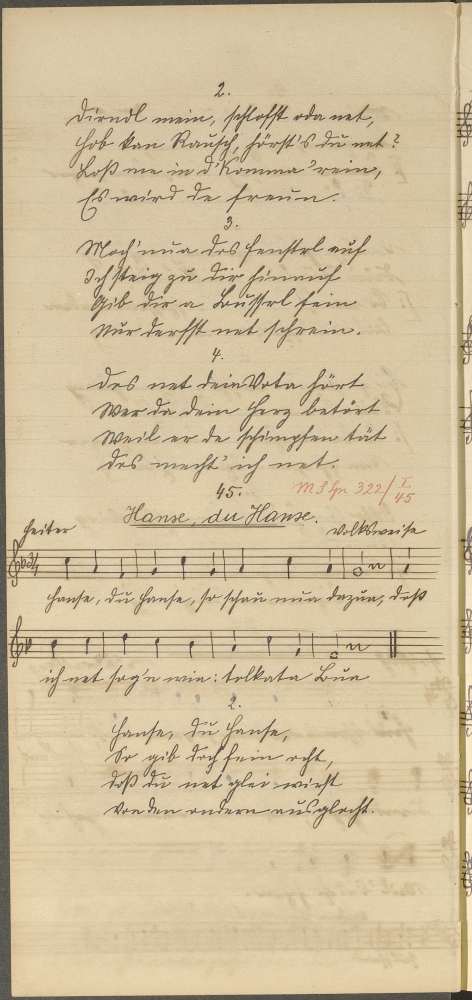 2.
Dirndl mein, schlofst oda net,
Hob kan Rausch, hörst's du net?
Loß me in d'Komma 'rein,
Es wird de freun.
3.
Moch' nua des Fenstrl auf
Ich steig zu dir hinauf
Gib dir a Bussrl fein
Nur derfst net schrein.
4.
Des net dein Vota hört
Wer da dein Herz betört
Weil er de schimpfen tät
Des mecht' ich net.
45.
Hanse, du Hanse.
Heiter Volksweise
Hanse, du Hanse, so schau nua dazua, daß
ich net sog'n wia: tolkata Bua
2.
Hanse, du Hanse,
So gib doch fein ocht,
Doß du net glei wirst
Von den andern ausglocht.